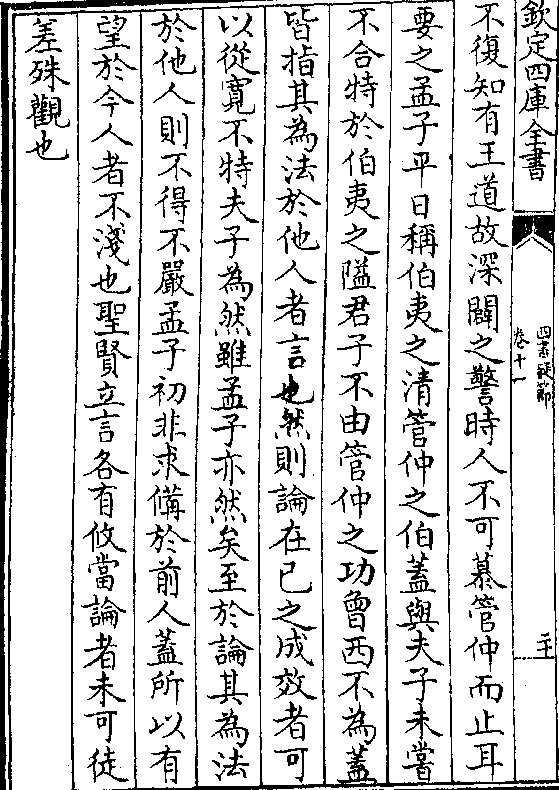 欽定四庫全書
四書疑節
卷十一
不復知有王道故深闢之警時人不可慕管仲而止耳
要之孟子平日稱伯夷之清管仲之伯蓋與夫子未嘗
不合特於伯夷之隘君子不由管仲之功曾西不為蓋
皆指其為法於他人者言也然則論在已之成效者可
以從寛不特夫子為然雖孟子亦然矣至於論其為法
於他人則不得不嚴孟子初非求備於前人蓋所以有
望於今人者不淺也聖賢立言各有攸當論者未可徒
差殊觀也